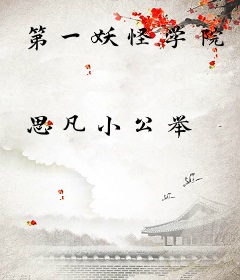 第一妖怪学院
思凡小公举